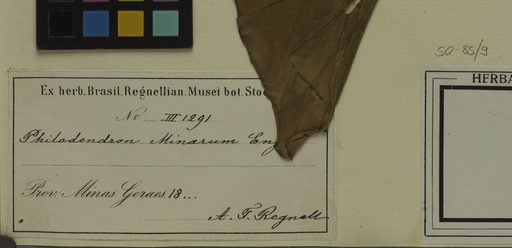 50-85/9
HERBA
Ex herb. Brasil. Regnellian. Musei bot. Sto
No III 1291
Philodendron Minarum Eng
Prov. Minas Geraes. 18...
A. F. Regnell